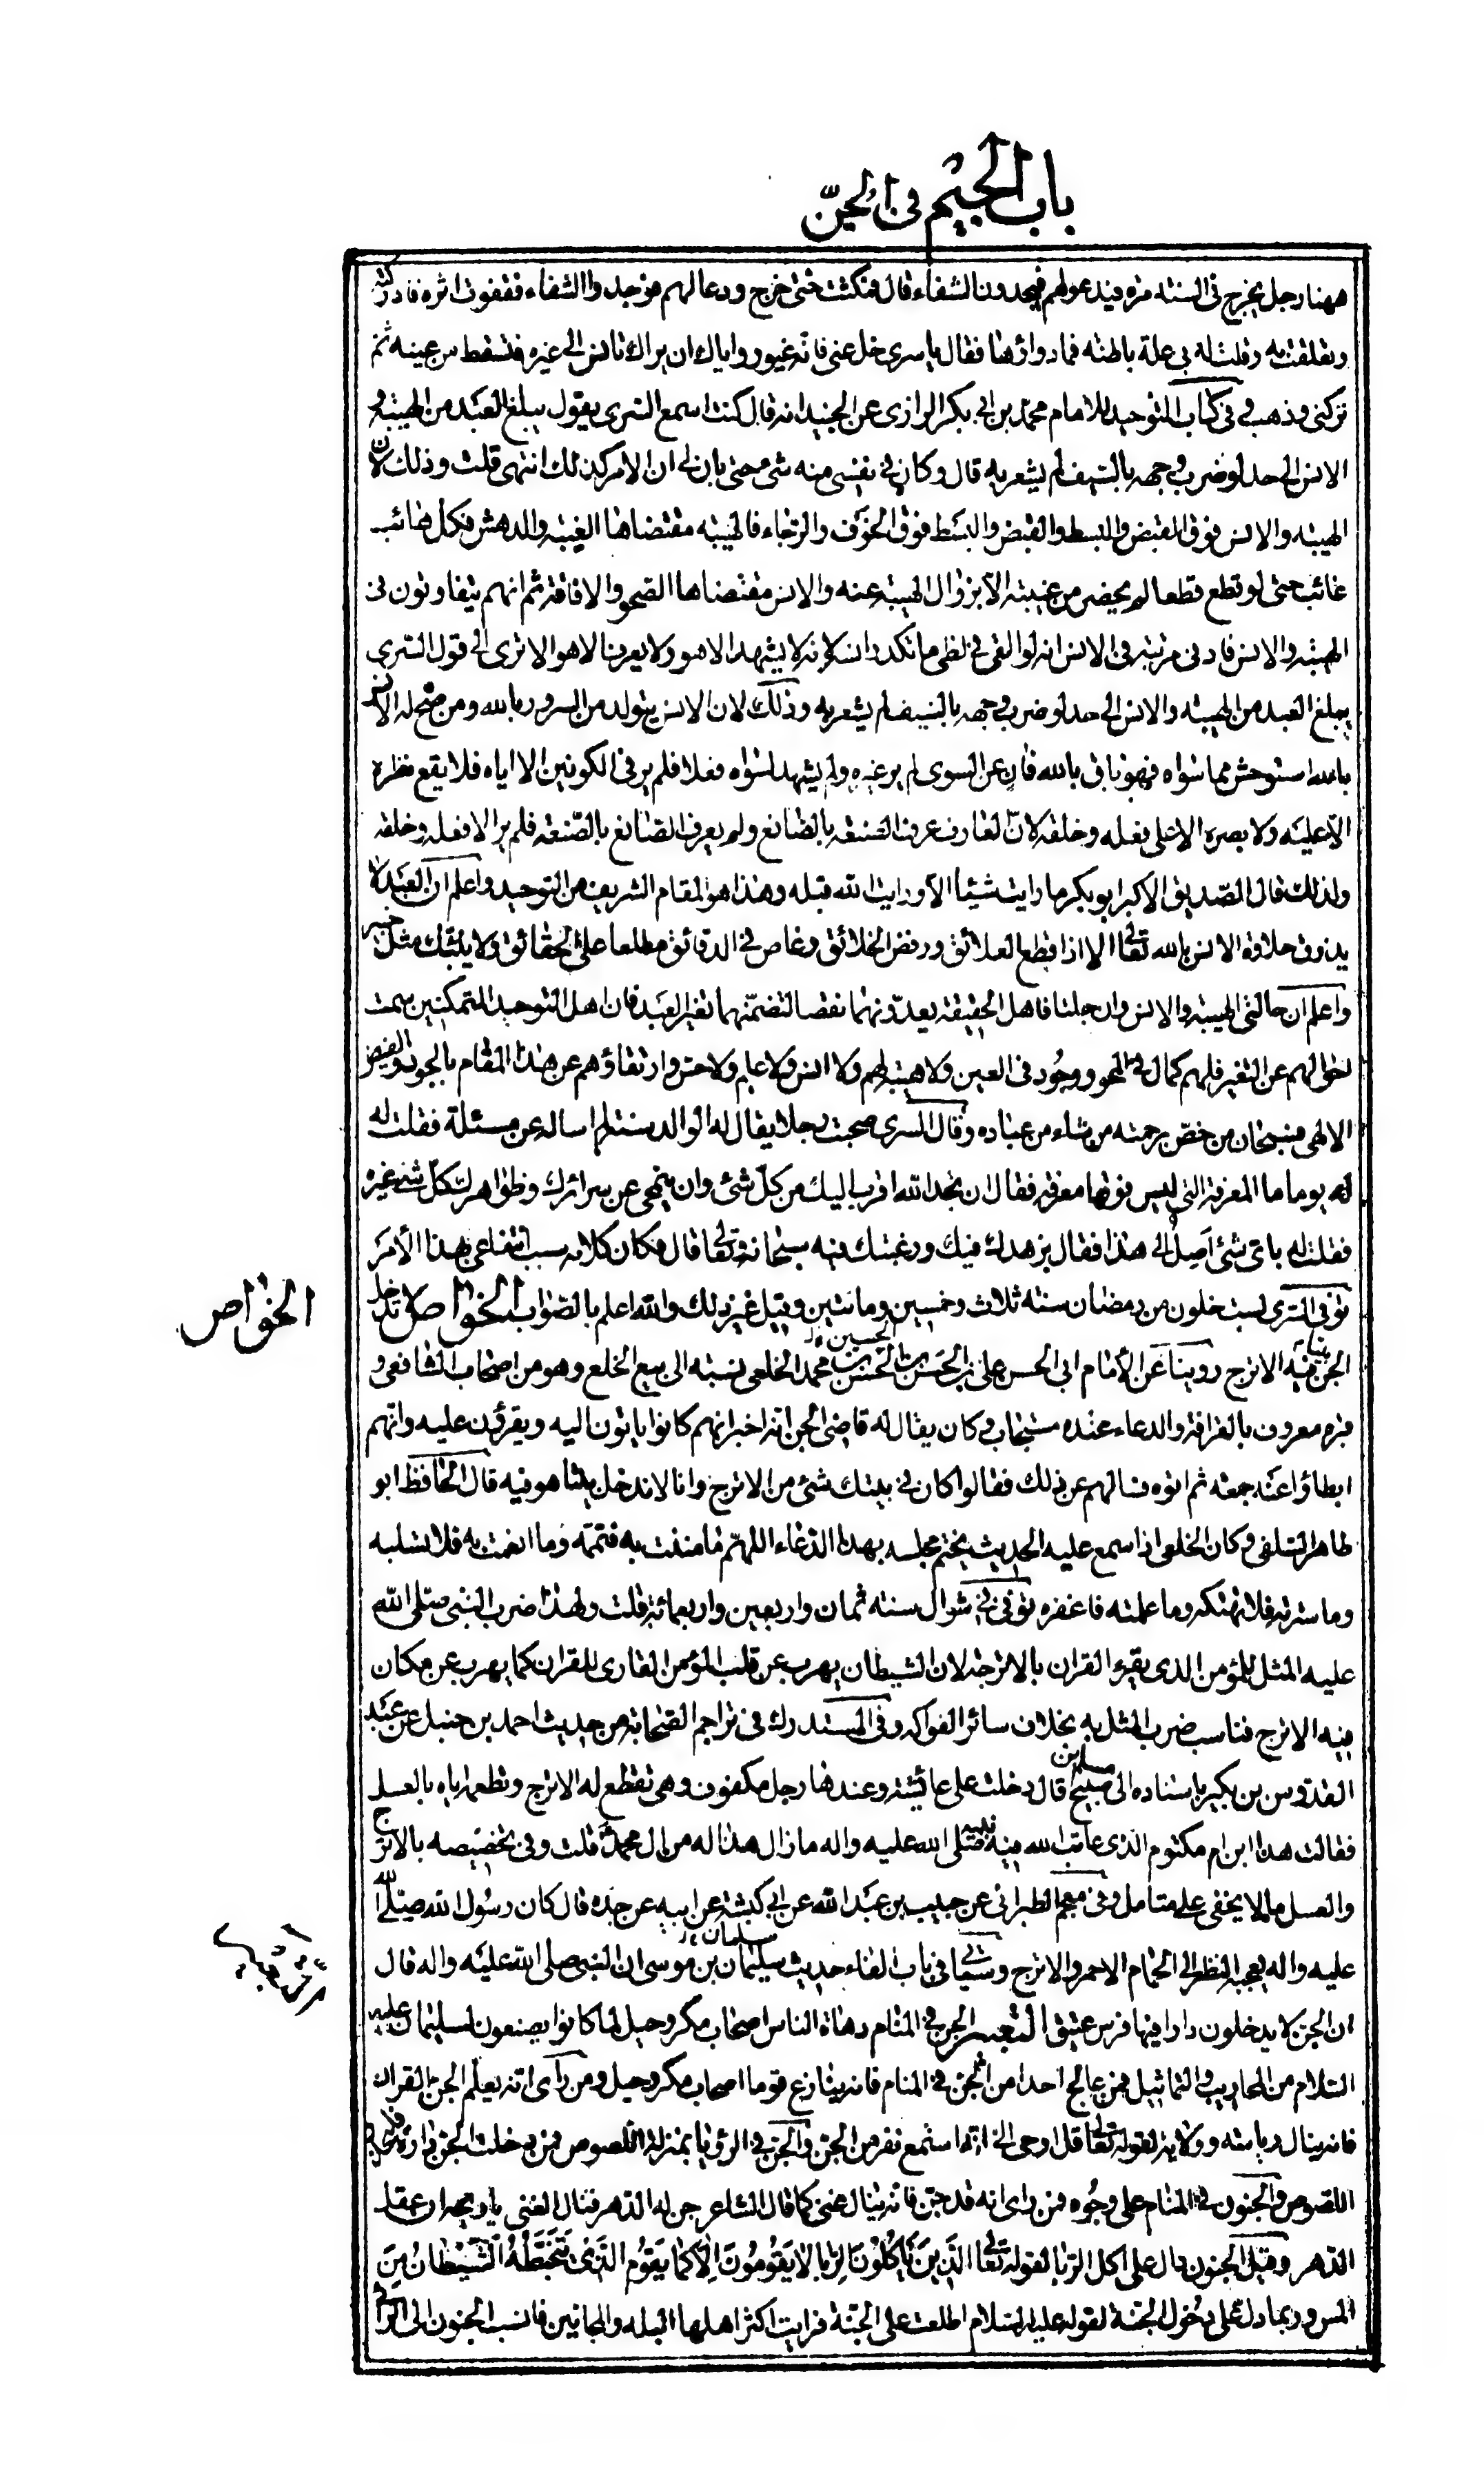 باب الجيم في الجنّ
ههنا رجل يخرج في السنة مرة فيدعو لهم فيجدون الشفاء قال فمكثت حتى خرج ودعا لهم فوجدوا الشفاء فقفوت اثره فادركته
وتعلقت به وقلت له بي علة باطنة فما دواؤها فقال يا سري خل عني فانه غيور واياك ان يراك تانس الى غيره فتسقط من عينه ثم
تركني وذهب وفي كتاب التوحيد للامام محمد بن ابي بكر الرازي عن الجنيد انه قال كنت اسمع السري يقول يبلغ العبد من الهيبة و
الانس الى حد لو ضرب وجهه بالسيف لم يشعر به قال وكان في نفسي منه شيء حتى بان لي ان الامر كذلك انتهى قلت وذلك لان
الهيبة والانس فوق القبض والبسط والقبض والبسط فوق الخوف والرجاء فالهيبة مقتضاها الغيبة والدهش فكل هائب
غائب حتى لو قطع قطعا لم يحضر من غيبته الا بزوال الهيبة عنه والانس مقتضاها الصحو والافاقة ثم انهم يتفاوتون في
الهيبة والانس فادنى مرتبة في الانس انه لو القي في لظى ما تكدر انسه لانه لا يشهد الا هو ولا يعرف الا هو الا ترى الى قول السري
يبلغ العبد من الهيبة والانس الى حد لو ضرب وجهه بالسيف لم يشعر به وذلك لان الانس يتولد من السرور بالله ومن صح له الانس
بالله استوحش مما سواه فهو باق بالله فان عن السوى لم ير غيره ولم يشهد لسواه فعلا فلم ير في الكونين الا اياه فلا يقع نظره
الا عليه ولا بصره الا على فعله وخلقه لان العارف عرف الصنعة بالصانع ولم يعرف الصانع بالصنعة فلم ير الا فعله وخلقه
ولذلك قال الصديق الاكبر ابو بكر ما رايت شيئا الا ورايت الله قبله وهذا هو المقام الشريف من التوحيد واعلم ان العبد لا
يذوق حلاوة الانس بالله تعالى الا اذا قطع العلائق ورفض الخلائق وغاص في الدقائق مطلعا على الحقائق ولا ينبئك مثل خبير
واعلم ان حالتي الهيبة والانس وان جلتا فاهل الحقيقة يعدونهما نقصا لتضمنهما تغير العبد فان اهل التوحيد المتمكنين سمت
احوالهم عن التغير فلهم كمال في المحو ووجود في العين ولا هيبة لهم ولا انس ولا علم ولا حس وارتقاؤهم عن هذا المقام بالجود والفيض
الالهي فسبحان من خص برحمته من شاء من عباده وقال السري صحبت رجلا يقال له الوالد سنة لم اساله عن مسئلة فقلت له
له يوما ما المعرفة التي ليس فوقها معرفة فقال ان تجد الله اقرب اليك من كل شئ وان ينمحي عن سرائرك وظواهرك كل شئ غيره
فقلت له باي شئ اصل الى هذا فقال بزهدك فيك ورغبتك فيه سبحانه وتعالى قال فكان كلامه سبب انتفاعي بهذا الامر
توفي السري لست خلون من رمضان سنة ثلاث وخمسين ومائتين وقيل غير ذلك والله اعلم بالصواب الخواص لا تدخل
الخواص
الجن بيتا فيه الاترج روينا عن الامام ابي الحسن علي بن الحسن بن الحسين بن محمد الخلعي نسبته الى بيع الخلع وهو من اصحاب الشافعي و
قبره معروف بالقرافة والدعاء عنده مستجاب وكان يقال له قاضي الجن انه اخبر انهم كانوا ياتون اليه ويقرؤن عليه وانهم
ابطاؤا عنه جمعة ثم اتوه فسالهم عن ذلك فقالوا كان في بيتك شئ من الاترج وانا لا ندخل بيتا هو فيه قال الحافظ ابو
طاهر السلفي وكان الخلعي اذا سمع عليه الحديث يختم مجلسه بهذا الدعاء اللهم ما مننت به فتممه وما انعمت به فلا تسلبه
وما سترته فلا تهتكه وما علمته فاغفره توفي في شوال سنة ثمان واربعين واربعمائة قلت ولهذا ضرب النبي صلى الله
عليه المثل للمؤمن الذي يقرء القران بالاترجة لان الشيطان يهرب عن قلب المؤمن القاري للقران كما يهرب عن مكان
فيه الاترج فناسب ضرب المثل به بخلاف سائر الفواكه وفي المستدرك في تراجم الصحابة من حديث احمد بن حنبل عن عبد
القدوس بن بكير باسناده الى مسلم بن صبيح قال دخلت على عائشة وعندها رجل مكفوف وهي تقطع له الاترج وتطعمه اياه بالعسل
فقالت هذا ابن ام مكتوم الذي عاتب الله فيه نبيه صلى الله عليه واله ما زال هذا له من ال محمد قلت وفي تخصيصه بالاترج
والعسل ما لا يخفى على متامل وفي معجم الطبراني عن حبيب بن عبد الله عن ابي كبشة عن ابيه عن جده قال كان رسول الله صلى الله
عليه واله يعجبه النظر الى الحمام الاحمر والاترج وسياتي في باب الفاء حديث سليمان بن موسى ان النبي صلى الله عليه واله قال
ان الجن لا يدخلون دارا فيها فرس عتيق التعبير الجن في المنام دهاة الناس اصحاب مكر وحيل لما كانوا يصنعون لسليمان عليه
السلام من المحاريب والتماثيل فمن عالج احدا من الجن في المنام فانه ينازع قوما اصحاب مكر وحيل ومن راى انه يعلم الجن القران
فانه ينال رياسة وولاية لقوله تعالى قل اوحي الي انه استمع نفر من الجن والجن في الرؤيا بمنزلة اللصوص فمن دخلت الجن داره
اللصوص والجنون في المنام على وجوه فمن راى انه قد جن فانه ينال غنى كما قال الشاعر جن له الدهر فنال الغنى يا ويحه ان عقل
الدهر وقيل الجنون دال على اكل الربا لقوله تعالى الَّذِينَ يَاكُلُونَ الرِّبا لا يَقُومُونَ اِلّا كَما يَقُومُ الَّذي يَتَخَبَّطُهُ الشَّيْطانُ مِنَ
المس وربما دل على دخول الجنة لقوله عليه السلام اطلعت على الجنة فرايت اكثر اهلها البله والمجانين فانسب الجنون الى الرائي